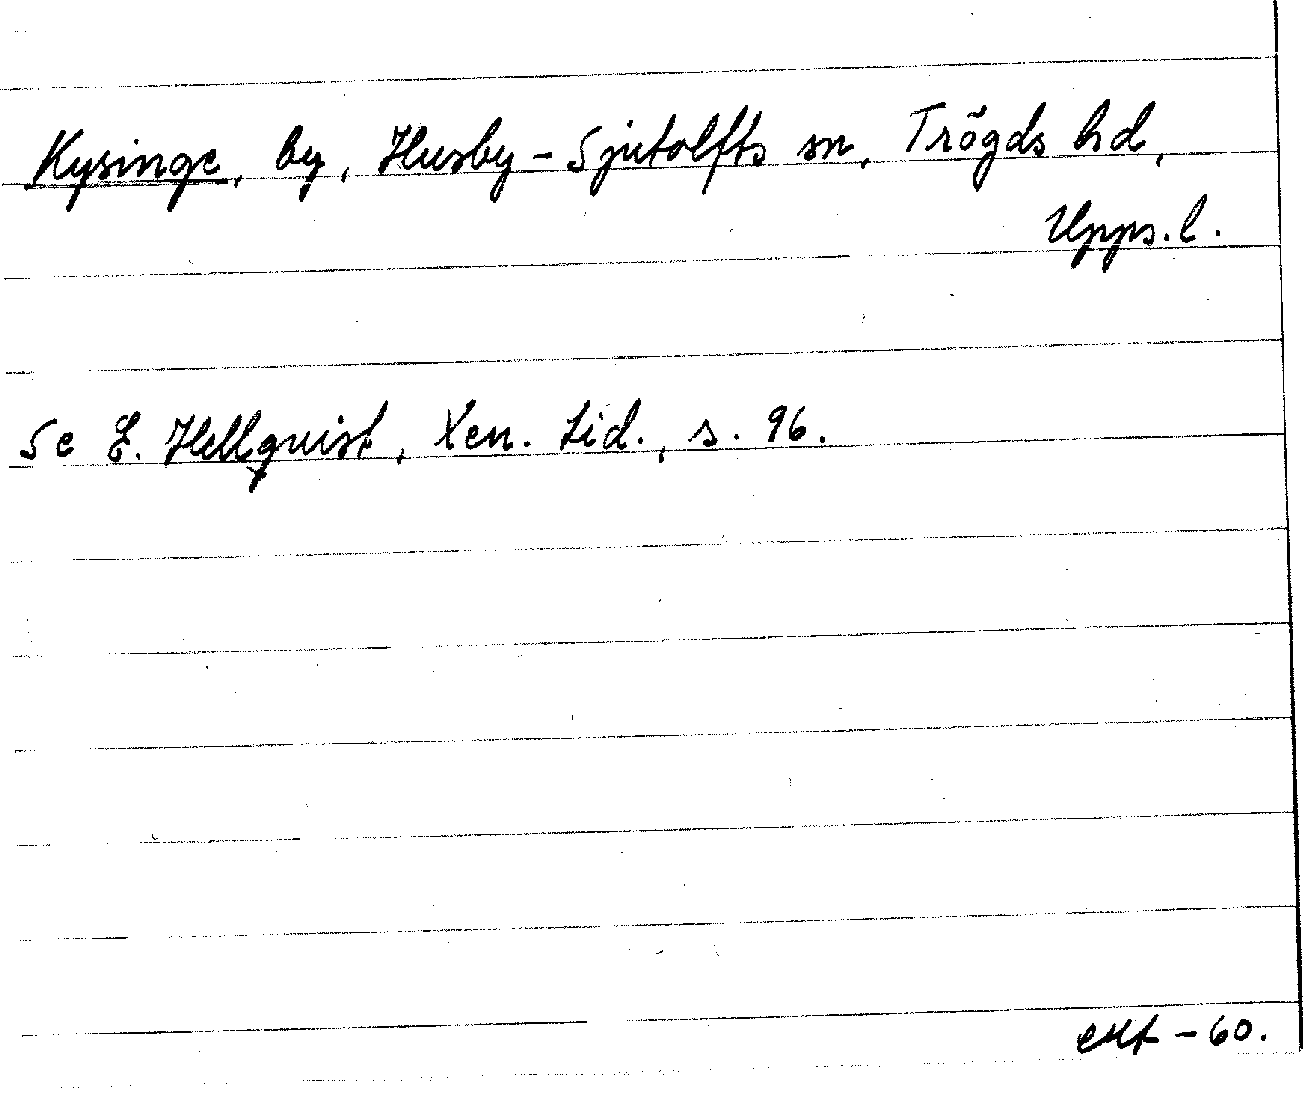 Kysinge, by, Husby-Sjutolfts sn, Trögds hd,
Upps. l.
Se E. Hellquist, Xen. Lid., s. 96.
-60.